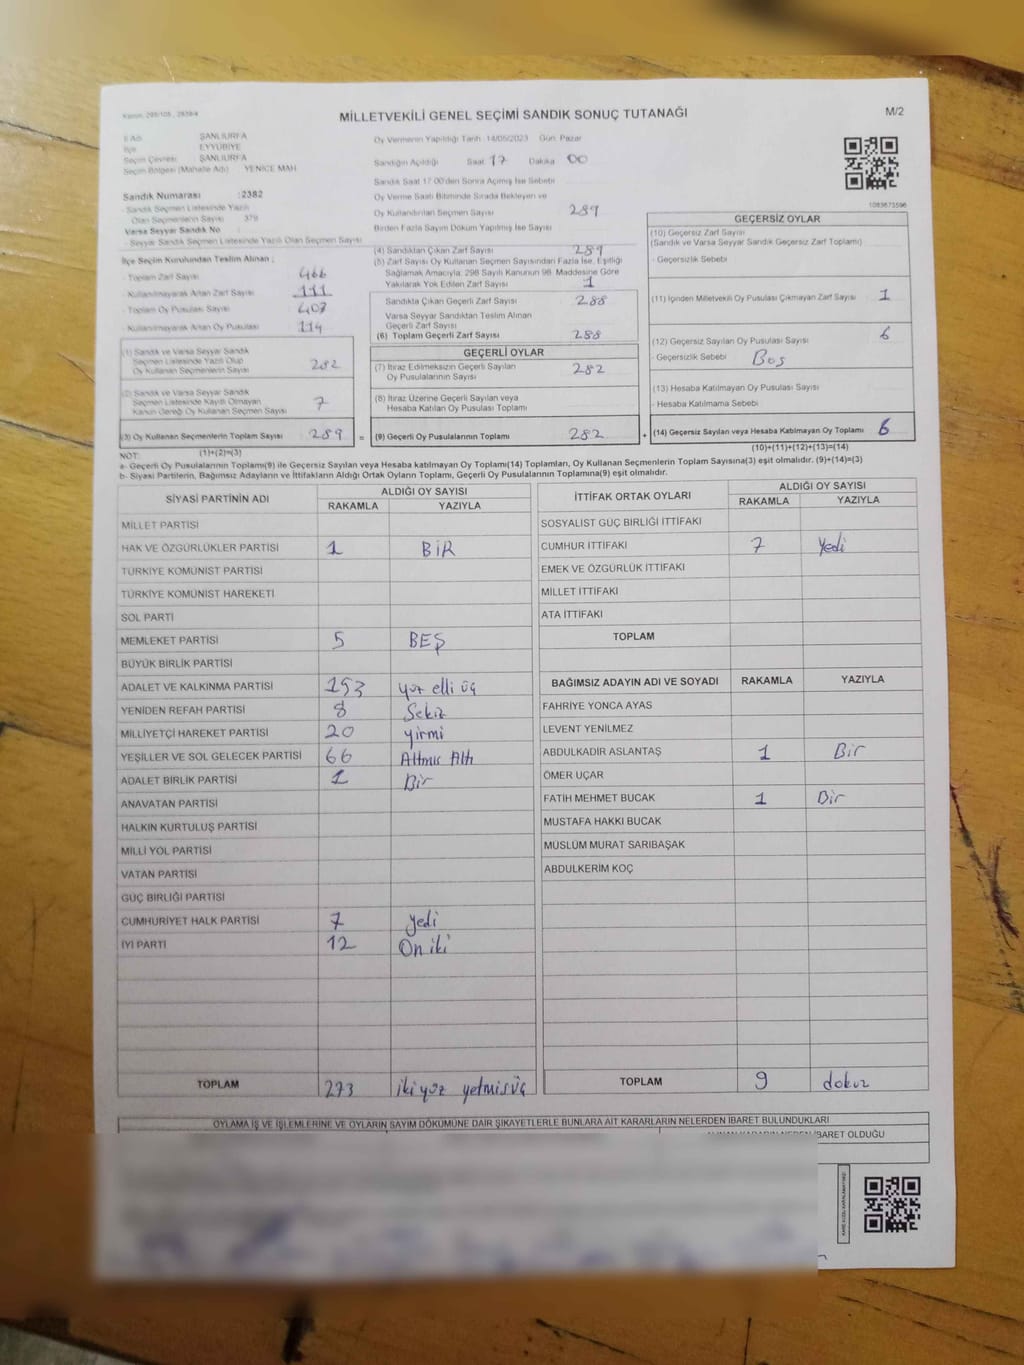 MİLLETVEKİLİ GENEL SEÇİMİ SANDIK SONUÇ TUTANAĞI
M/2
İl Adı ŞANLIURFA
İlçe EYYÜBİYE
Seçim Çevresi ŞANLIURFA
Seçim Bölgesi (Mahalle Adı) YENİCE MAH
Sandık Numarası :2382
Sandık Seçmen Listesinde Yazılı
Olan Seçmenlerin Sayısı 379
Varsa Seyyar Sandık No
Seyyar Sandık Seçmen Listesinde Yazılı Olan Seçmen Sayısı
Oy Vermenin Yapıldığı Tarih 14/05/2023 Gün Pazar
Sandığın Açıldığı Saat 17 Dakika 00
Sandık Saat 17:00'den Sonra Açılmış İse Sebebi
Oy Verme Saati Bitiminde Sırada Bekleyen ve
Oy Kullandırılan Seçmen Sayısı 289
Birden Fazla Sayım Döküm Yapılmış İse Sayısı
1083673596
İlçe Seçim Kurulundan Teslim Alınan ;
- Toplam Zarf Sayısı 466
- Kullanılmayarak Artan Zarf Sayısı 111
- Toplam Oy Pusulası Sayısı 403
- Kullanılmayarak Artan Oy Pusulası 114
(1) Sandık ve Varsa Seyyar Sandık
Seçmen Listesinde Yazılı Olup
Oy Kullanan Seçmenlerin Sayısı 282
(2) Sandık ve Varsa Seyyar Sandık
Seçmen Listesinde Kayıtlı Olmayan
Kanun Gereği Oy Kullanan Seçmen Sayısı 7
(3) Oy Kullanan Seçmenlerin Toplam Sayısı 289 =
(1)+(2)=(3)
(4) Sandıktan Çıkan Zarf Sayısı 289
(5) Zarf Sayısı Oy Kullanan Seçmen Sayısından Fazla İse, Eşitliği
Sağlamak Amacıyla, 298 Sayılı Kanunun 98. Maddesine Göre
Yakılarak Yok Edilen Zarf Sayısı 1
Sandıkta Çıkan Geçerli Zarf Sayısı 288
Varsa Seyyar Sandıktan Teslim Alınan
Geçerli Zarf Sayısı
(6) Toplam Geçerli Zarf Sayısı 288
GEÇERLİ OYLAR
(7) İtiraz Edilmeksizin Geçerli Sayılan
Oy Pusulalarının Sayısı 282
(8) İtiraz Üzerine Geçerli Sayılan veya
Hesaba Katılan Oy Pusulası Toplamı
(9) Geçerli Oy Pusulalarının Toplamı 282 +
GEÇERSİZ OYLAR
(10) Geçersiz Zarf Sayısı
(Sandık ve Varsa Seyyar Sandık Geçersiz Zarf Toplamı)
- Geçersizlik Sebebi
(11) İçinden Milletvekili Oy Pusulası Çıkmayan Zarf Sayısı 1
(12) Geçersiz Sayılan Oy Pusulası Sayısı 6
- Geçersizlik Sebebi Boş
(13) Hesaba Katılmayan Oy Pusulası Sayısı
- Hesaba Katılmama Sebebi
(14) Geçersiz Sayılan veya Hesaba Katılmayan Oy Toplamı 6
(10)+(11)+(12)+(13)=(14)
NOT:
a- Geçerli Oy Pusulalarının Toplamı(9) ile Geçersiz Sayılan veya Hesaba katılmayan Oy Toplamı(14) Toplamları, Oy Kullanan Seçmenlerin Toplam Sayısına(3) eşit olmalıdır. (9)+(14)=(3)
b- Siyasi Partilerin, Bağımsız Adayların ve İttifakların Aldığı Ortak Oyların Toplamı, Geçerli Oy Pusulalarının Toplamına(9) eşit olmalıdır.
SİYASİ PARTİNİN ADI
ALDIĞI OY SAYISI
RAKAMLA YAZIYLA
MİLLET PARTİSİ
HAK VE ÖZGÜRLÜKLER PARTİSİ 1 BİR
TÜRKİYE KOMÜNİST PARTİSİ
TÜRKİYE KOMÜNİST HAREKETİ
SOL PARTİ
MEMLEKET PARTİSİ 5 BEŞ
BÜYÜK BİRLİK PARTİSİ
ADALET VE KALKINMA PARTİSİ 153 yüz elli üç
YENİDEN REFAH PARTİSİ 8 Sekiz
MİLLİYETÇİ HAREKET PARTİSİ 20 yirmi
YEŞİLLER VE SOL GELECEK PARTİSİ 66 Altmış Altı
ADALET BİRLİK PARTİSİ 1 Bir
ANAVATAN PARTİSİ
HALKIN KURTULUŞ PARTİSİ
MİLLİ YOL PARTİSİ
VATAN PARTİSİ
GÜÇ BİRLİĞİ PARTİSİ
CUMHURİYET HALK PARTİSİ 7 Yedi
İYİ PARTİ 12 On iki
TOPLAM 273 iki yüz yetmiş üç
İTTİFAK ORTAK OYLARI
ALDIĞI OY SAYISI
RAKAMLA YAZIYLA
SOSYALİST GÜÇ BİRLİĞİ İTTİFAKI
CUMHUR İTTİFAKI 7 Yedi
EMEK VE ÖZGÜRLÜK İTTİFAKI
MİLLET İTTİFAKI
ATA İTTİFAKI
TOPLAM
BAĞIMSIZ ADAYIN ADI VE SOYADI RAKAMLA YAZIYLA
FAHRİYE YONCA AYAS
LEVENT YENİLMEZ
ABDULKADİR ASLANTAŞ 1 Bir
ÖMER UÇAR
FATİH MEHMET BUCAK 1 Bir
MUSTAFA HAKKI BUCAK
MÜSLÜM MURAT SARIBAŞAK
ABDULKERİM KOÇ
TOPLAM 9 dokuz
OYLAMA İŞ VE İŞLEMLERİNE VE OYLARIN SAYIM DÖKÜMÜNE DAİR ŞİKAYETLERLE BUNLARA AİT KARARLARIN NELERDEN İBARET BULUNDUKLARI
İBARET OLDUĞU